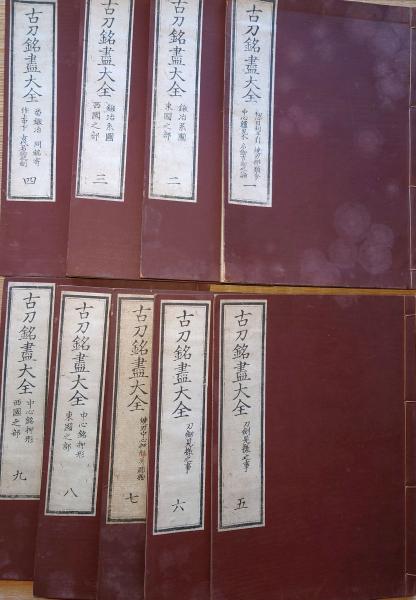 古刀銘盡大全
一
古刀銘盡大全
鍛冶系圖
東國之部
二
古刀銘盡大全
鍛冶系圖
西國之部
三
古刀銘盡大全
四
古刀銘盡大全
刀劍見様之事
五
古刀銘盡大全
刀劍見様之事
六
古刀銘盡大全
七
古刀銘盡大全
中心銘押形
東國之部
八
古刀銘盡大全
中心銘押形
西國之部
九